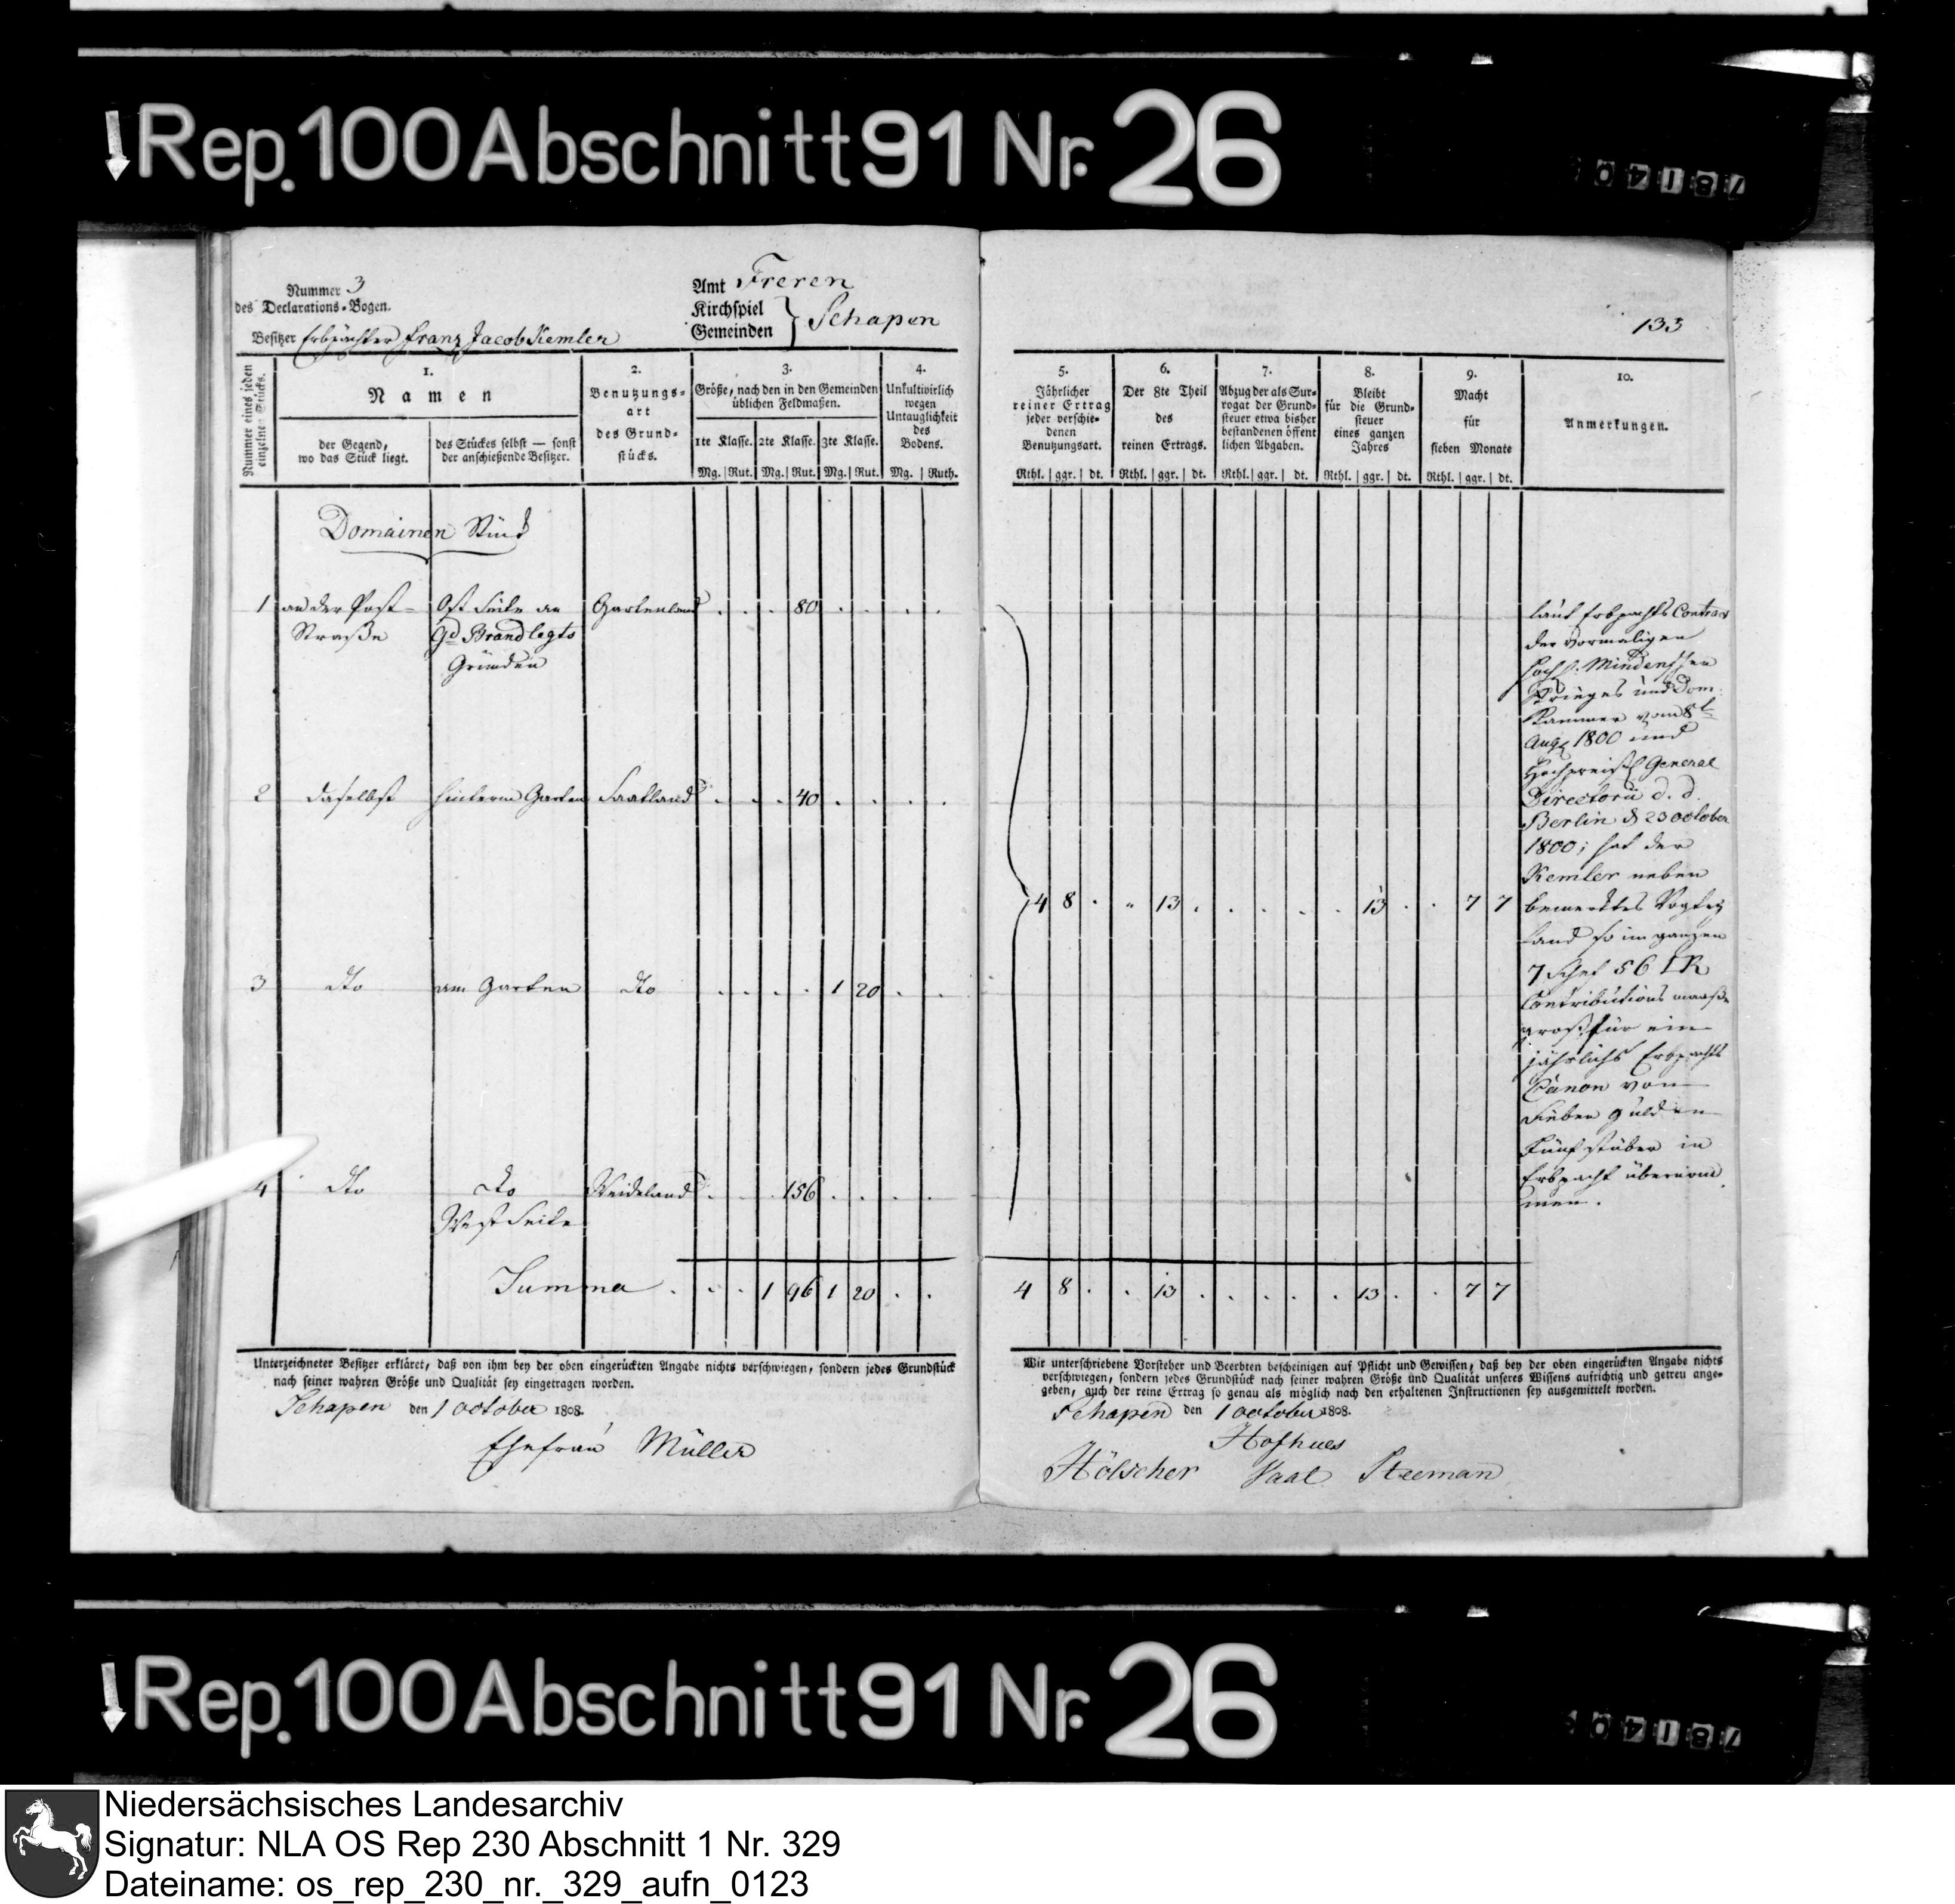 Rep. 100 Abschnitt 91 Nr. 26
78140
Nummer 3
des Declarations-Bogen.
Besitzer Erbpächter Franz Jacob Kemler
Amt Freren
Kirchspiel
Gemeinden } Schapen
133
Nummer eines jeden einzelnen Stücks.
1.
Namen
der Gegend, wo das Stück liegt.
des Stückes selbst — sonst der anschießende Besitzer.
2.
Benutzungs-
art
des Grund-
stücks.
3.
Größe, nach den in den Gemeinden
üblichen Feldmaßen.
1te Klasse. 2te Klasse. 3te Klasse.
Mg. Rut. Mg. Rut. Mg. Rut.
4.
Unkultivirlich
wegen
Untauglichkeit
des
Bodens.
Mg. Ruth.
5.
Jährlicher
reiner Ertrag
jeder verschie-
denen
Benutzungsart.
Rthl. ggr. dt.
6.
Der 8te Theil
des
reinen Ertrags.
Rthl. ggr. dt.
7.
Abzug der als Sur-
rogat der Grund-
steuer etwa bisher
bestandenen öffent
lichen Abgaben.
Rthl. ggr. dt.
8.
Bleibt
für die Grund-
steuer
eines ganzen
Jahres
Rthl. ggr. dt.
9.
Macht
für
sieben Monate
Rthl. ggr. dt.
10.
Anmerkungen.
Domainen Stück
1 an der Post- Ost Seite an Gartenland . . . 80 . . . .
Straße Gd Brandlegts
Gründen
2 daselbst hinterm Garten Saatland . . . 40 . . . .
3 dto am Garten dto . . . . 1 20 . .
4 dto dto Weideland . . . 156 . . . .
West Seite
4 8 . " 13 . . . . . 13 . . 7 7
laut Erbpachts Contract
der vormaligen
Mindenschen
Krieges und Dom.
Kammer vom 8t
Augt 1800 und
Hochpreisl General
Directorii d. d.
Berlin d 23 October
1800; hat der
Kemler neben
bemerktes Vogtey
Land so im ganzen
7 Schef 56 IR
Contributions maaße
groß für ein
jährlichs Erbpachts
Canon von
Sieben Gulden
Fünf stüber in
Erbpacht übernom
men.
Summa . . . 1 96 1 20 . .
4 8 . . 13 . . . . . 13 . . 7 7
Unterzeichneter Besitzer erkläret, daß von ihm bey der oben eingerückten Angabe nichts verschwiegen, sondern jedes Grundstück
nach seiner wahren Größe und Qualität sey eingetragen worden.
Schapen den 1 October 1808.
Ehefrau Müller
Wir unterschriebene Vorsteher und Beerbten bescheinigen auf Pflicht und Gewissen, daß bey der oben eingerückten Angabe nichts
verschwiegen, sondern jedes Grundstück nach seiner wahren Größe und Qualität unseres Wissens aufrichtig und getreu ange-
geben, auch der reine Ertrag so genau als möglich nach den erhaltenen Instructionen sey ausgemittelt worden.
Schapen den 1 October 1808.
Hofhues
Hölscher Saal Steeman
Rep. 100 Abschnitt 91 Nr. 26
78140
Niedersächsisches Landesarchiv
Signatur: NLA OS Rep 230 Abschnitt 1 Nr. 329
Dateiname: os_rep_230_nr._329_aufn_0123